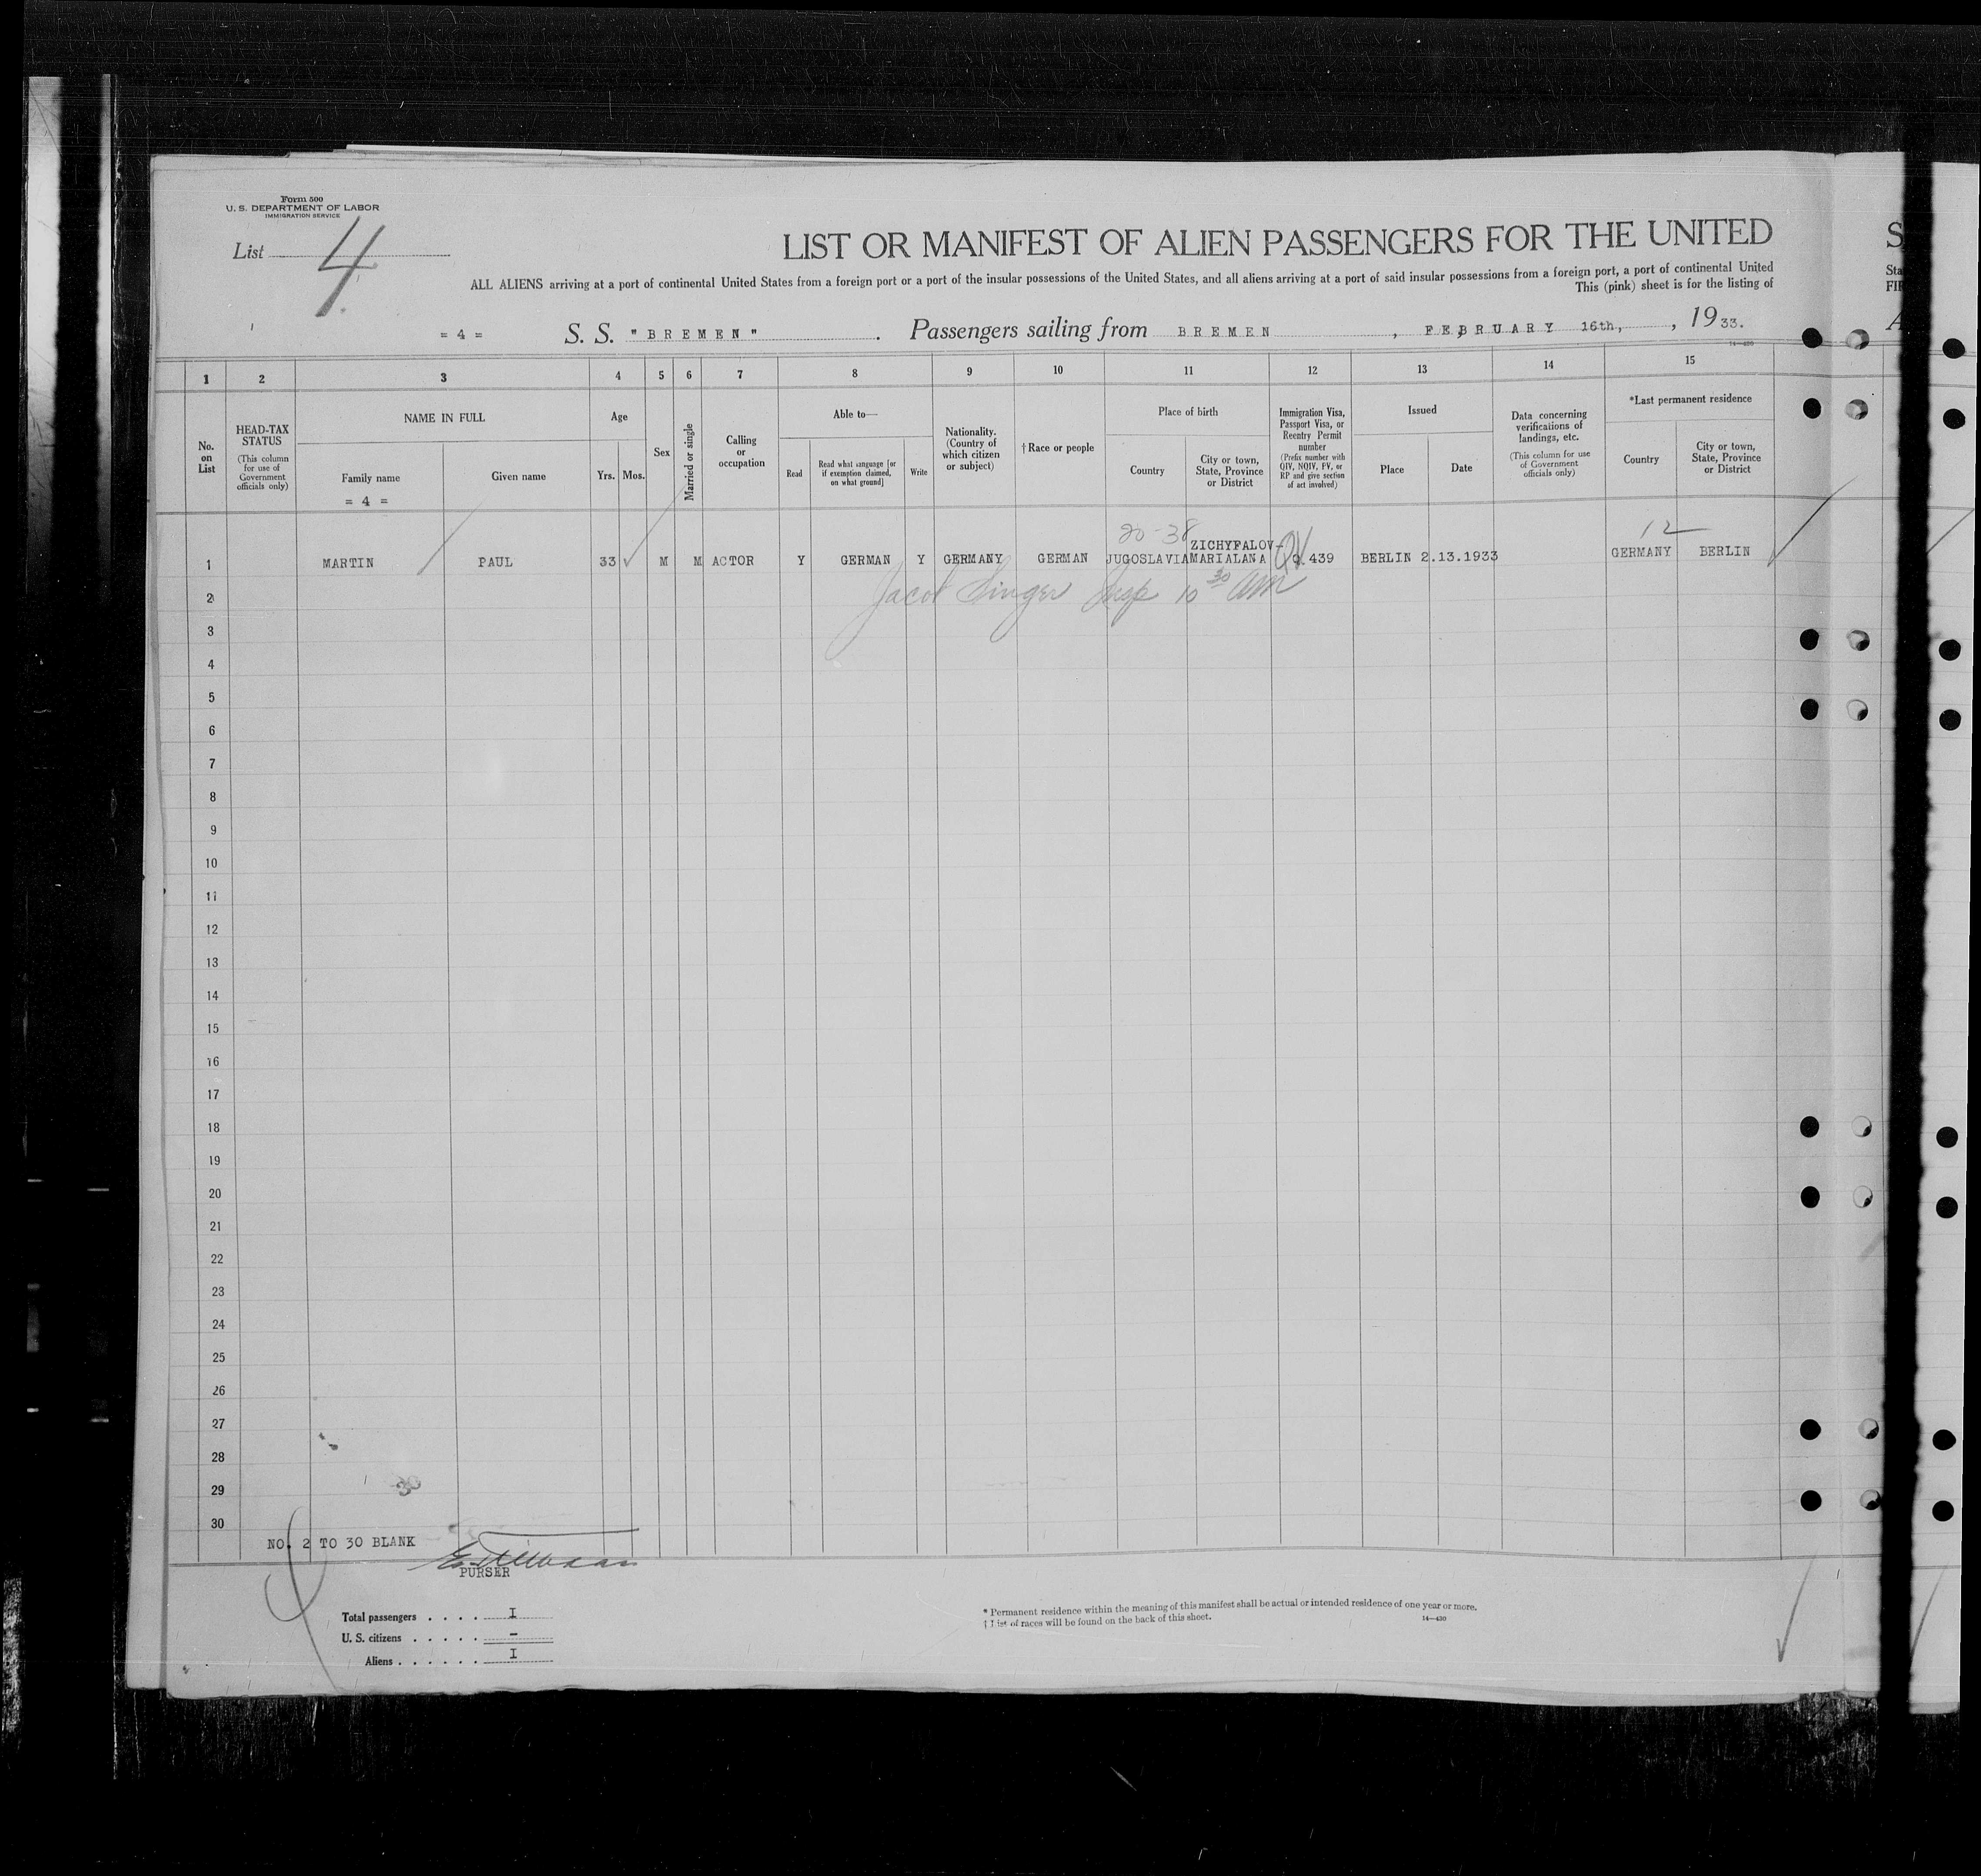 Form 500
U. S. DEPARTMENT OF LABOR
IMMIGRATION SERVICE
List 4
LIST OR MANIFEST OF ALIEN PASSENGERS FOR THE UNITED
S
ALL ALIENS arriving at a port of continental United States from a foreign port or a port of the insular possessions of the United States, and all aliens arriving at a port of said insular possessions from a foreign port, a port of continental United
Sta
This (pink) sheet is for the listing of
FIR
= 4 = S. S. "BREMEN". Passengers sailing from BREMEN, FEBRUARY 16th, , 1933.
A
14—430
1 2 3 4 5 6 7 8 9 10 11 12 13 14 15
No. on List
HEAD-TAX STATUS (This column for use of Government officials only)
NAME IN FULL
Family name
Given name
= 4 =
Age
Yrs. Mos.
Sex
Married or single
Calling or occupation
Able to—
Read
Read what language [or if exemption claimed, on what ground]
Write
Nationality. (Country of which citizen or subject)
† Race or people
Place of birth
Country
City or town, State, Province or District
Immigration Visa, Passport Visa, or Reentry Permit number (Prefix number with QIV, NQIV, PV, or RP and give section of act involved)
Issued
Place
Date
Data concerning verifications of landings, etc. (This column for use of Government officials only)
*Last permanent residence
Country
City or town, State, Province or District
20-38
12
ZICHYFALOV-
1 MARTIN PAUL 33 M M ACTOR Y GERMAN Y GERMANY GERMAN JUGOSLAVIA MARIALANA QV 439 BERLIN 2.13.1933 GERMANY BERLIN
Jacob Singer Insp 10 30 am
2
3
4
5
6
7
8
9
10
11
12
13
14
15
16
17
18
19
20
21
22
23
24
25
26
27
28
29
30
30
NO. 2 TO 30 BLANK
PURSER
Total passengers . . . . . I
U. S. citizens . . . . . –
Aliens . . . . . . I
* Permanent residence within the meaning of this manifest shall be actual or intended residence of one year or more.
† List of races will be found on the back of this sheet.
14—430